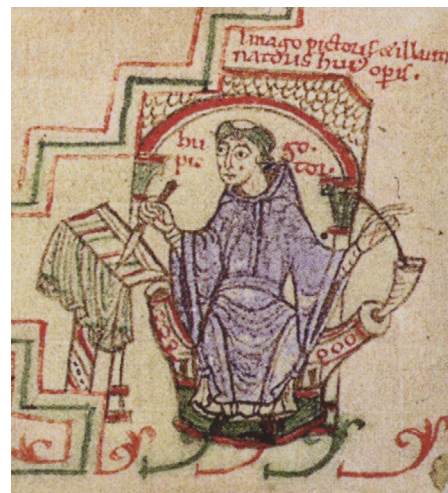 Imago pictoris & illumi
natoris huiꝰ op̲is.
hu go.
pic tor.